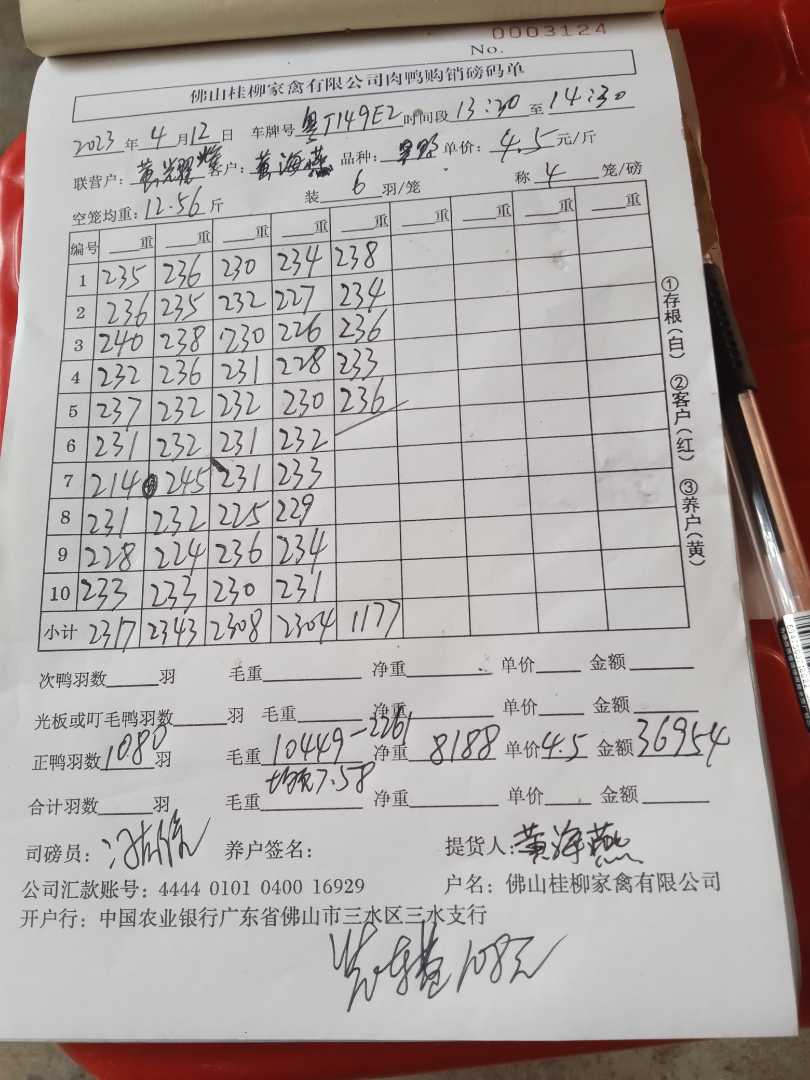 0003124
No.
佛山桂柳家禽有限公司肉鸭购销磅码单
2023年4月12日 车牌号粤J149E2时间段13:20至14:30
联营户:黄耀辉客户:黄海燕 品种: 单价:4.5元/斤
空笼均重:12.56斤 装6羽/笼 称4笼/磅
编号 重 重 重 重 重 重 重 重 重
1 235 236 230 234 238
2 236 235 232 227 234
3 240 238 230 226 236
4 232 236 231 228 233
5 237 232 232 230 236
6 231 232 231 232
7 214 245 231 233
8 231 232 225 229
9 228 224 236 234
10 233 233 230 231
小计 2317 2343 2308 2304 1177
次鸭羽数 羽 毛重 净重 单价 金额
光板或叮毛鸭羽数 羽 毛重 净重 单价 金额
正鸭羽数1080羽 毛重10449-2261净重8188单价4.5金额36954
均重7.58
合计羽数 羽 毛重 净重 单价 金额
司磅员: 养户签名: 提货人:黄海燕
公司汇款账号:4444 0101 0400 16929 户名:佛山桂柳家禽有限公司
开户行:中国农业银行广东省佛山市三水区三水支行
108元
①存根(白) ②客户(红) ③养户(黄)